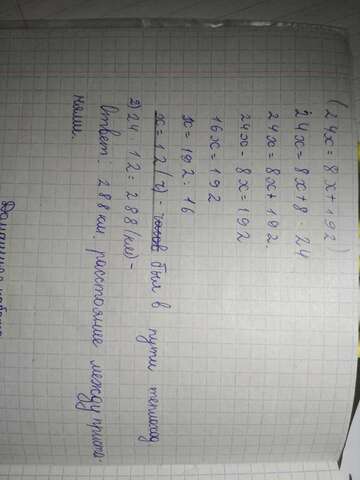 (24x = 8x + 192)
24x = 8x + 8 · 24
24x = 8x + 192.
24x - 8x = 192
16x = 192
x = 192 : 16
x = 12 (ч) - был в пути теплоход
2) 24 · 12 = 288 (км) -
Ответ: 288 км. расстояние между приста-
нями.